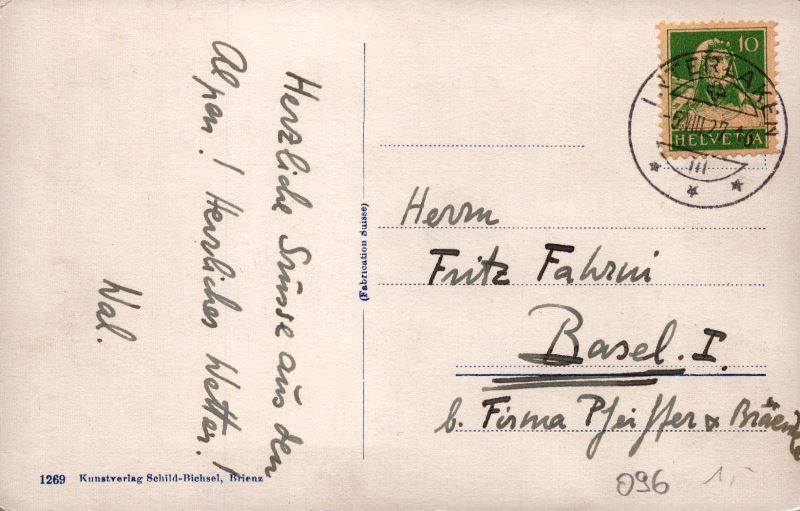 Herzliche Grüsse aus den
Alpen! Herrliches Wetter!
Wal.
(Fabrication Suisse)
10
HELVETIA
INTERLAKEN
VIII.27
Herrn
Fritz Fahrni
Basel. I.
b. Firma Pfeiffer &
1269 Kunstverlag Schild-Bichsel, Brienz
096
1,-